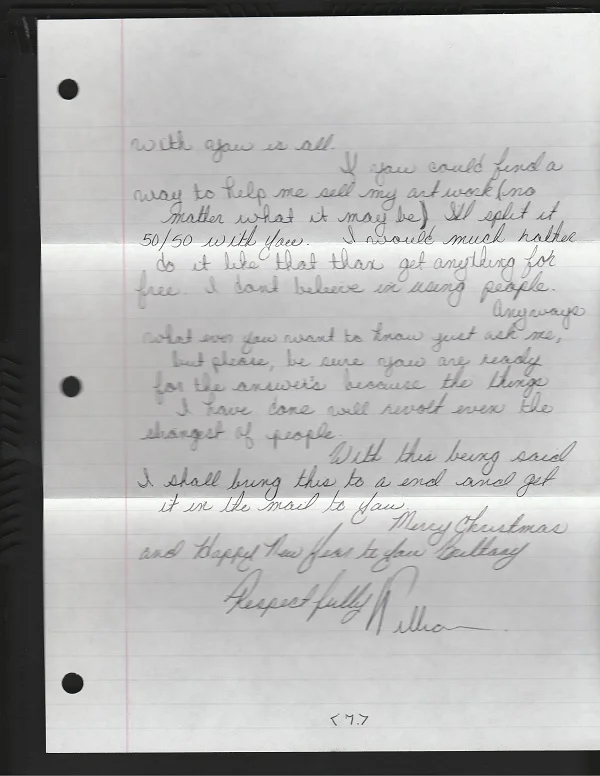 with you is all.
If you could find a
way to help me sell my art work (no
matter what it may be) I'll split it
50/50 with you. I would much rather
do it like that than get anything for
free. I dont believe in using people.
Anyways
what ever you want to know just ask me,
but please, be sure you are ready
for the answer's because the things
I have done will revolt even the
strongest of people.
With this being said
I shall bring this to a end and get
it in the mail to you.
Merry Christmas
and Happy New Year to you Brittany
Respectfully William
<7.>